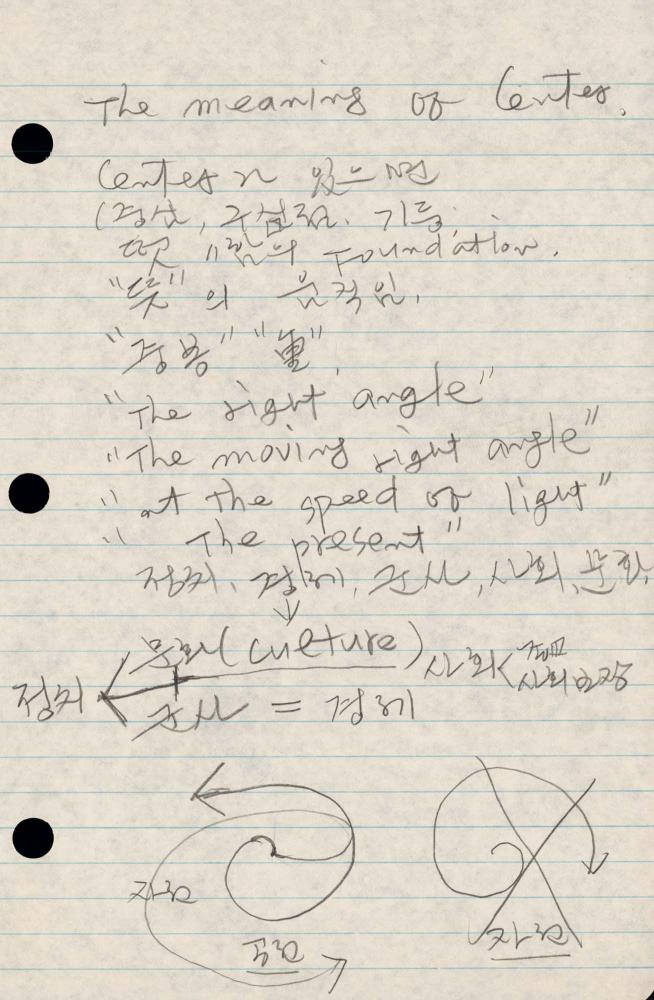 The meaning of Center.
Center 있으면
(정신, 구심점, 기능,
foundation.
"뜻"의 움직임,
"중용" "重"
"The right angle"
"The moving right angle"
"at the speed of light"
" The present"
정치, 경제, 군사, 사회, 문화,
문화(culture)
사회
사회보장
정치
군사 = 경제
자전
공전
자전